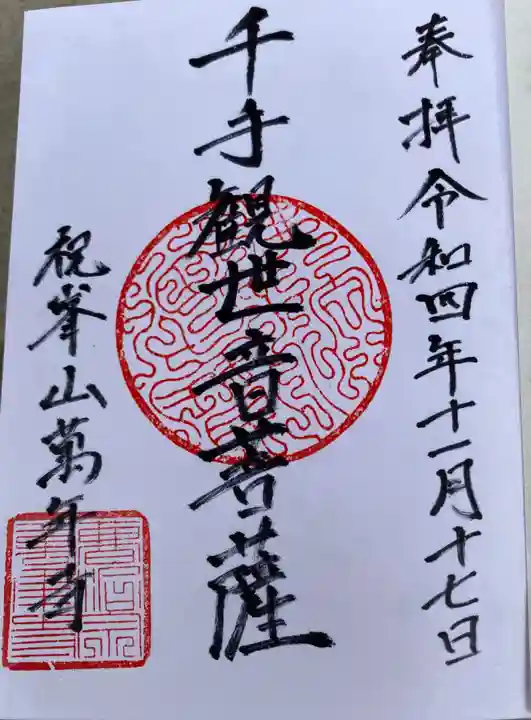 奉拝 令和四年十一月十七日
千手観世音菩薩
祝峯山萬年寺